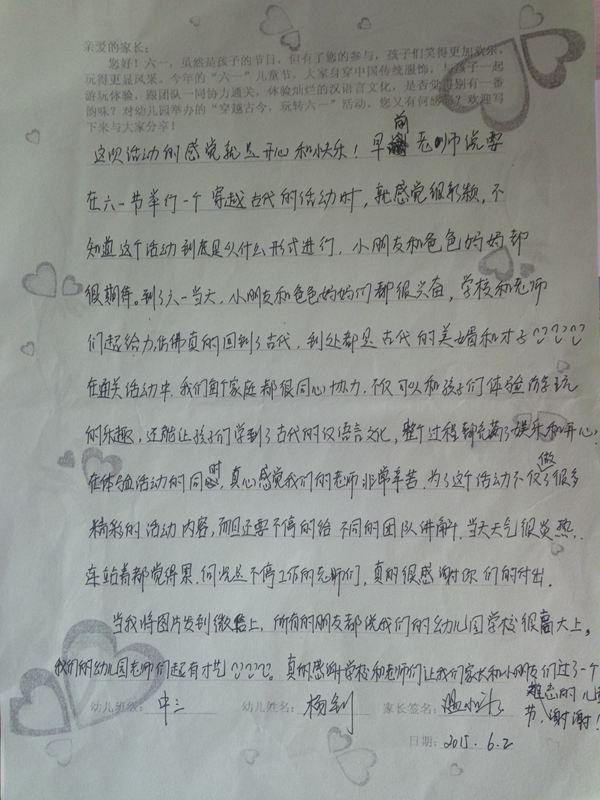 亲爱的家长：
您好！六一，虽然是孩子的节日，但有了您的参与，孩子们笑得更加欢乐，
玩得更显风采。今年的“六一”儿童节，大家身穿中国传统服饰，与孩子一起
游玩体验，跟团队一同协力通关，体验灿烂的汉语言文化，是否觉得别有一番
韵味？对幼儿园举办的“穿越古今，玩转六一”活动，您又有何感想？欢迎写
下来与大家分享！
这次活动的感觉就是开心和快乐！早前老师说要
在六一节举行一个穿越古代的活动时，就感觉很新颖，不
知道这个活动到底是以什么形式进行，小朋友和爸爸妈妈都
很期待。到了六一当天，小朋友和爸爸妈妈们都很兴奋，学校和老师
们超给力，仿佛真的回到了古代，到处都是古代的美女和才子
在通关活动中，我们每个家庭都很同心协力，不仅可以和孩子们体验游玩
的乐趣，还能让孩子们学到了古代的汉语言文化，整个过程都充满了娱乐和开心！
在体验活动的同时，真心感觉我们的老师非常辛苦，为了这个活动不仅做了很多
精彩的活动内容，而且还要不停的给不同的团队讲解，当天天气很炎热，
连站着都觉得累，何况是不停工作的老师们，真的很感谢你们的付出。
当我将图片发到微信上，所有的朋友都说我们的幼儿园学校很高大上，
我们的幼儿园老师们超有才艺 真的感谢学校和老师们让我们家长和小朋友们过了一个
难忘的儿童
节，谢谢！
幼儿班级：中三 幼儿姓名：杨 家长签名：温
日期：2015.6.2